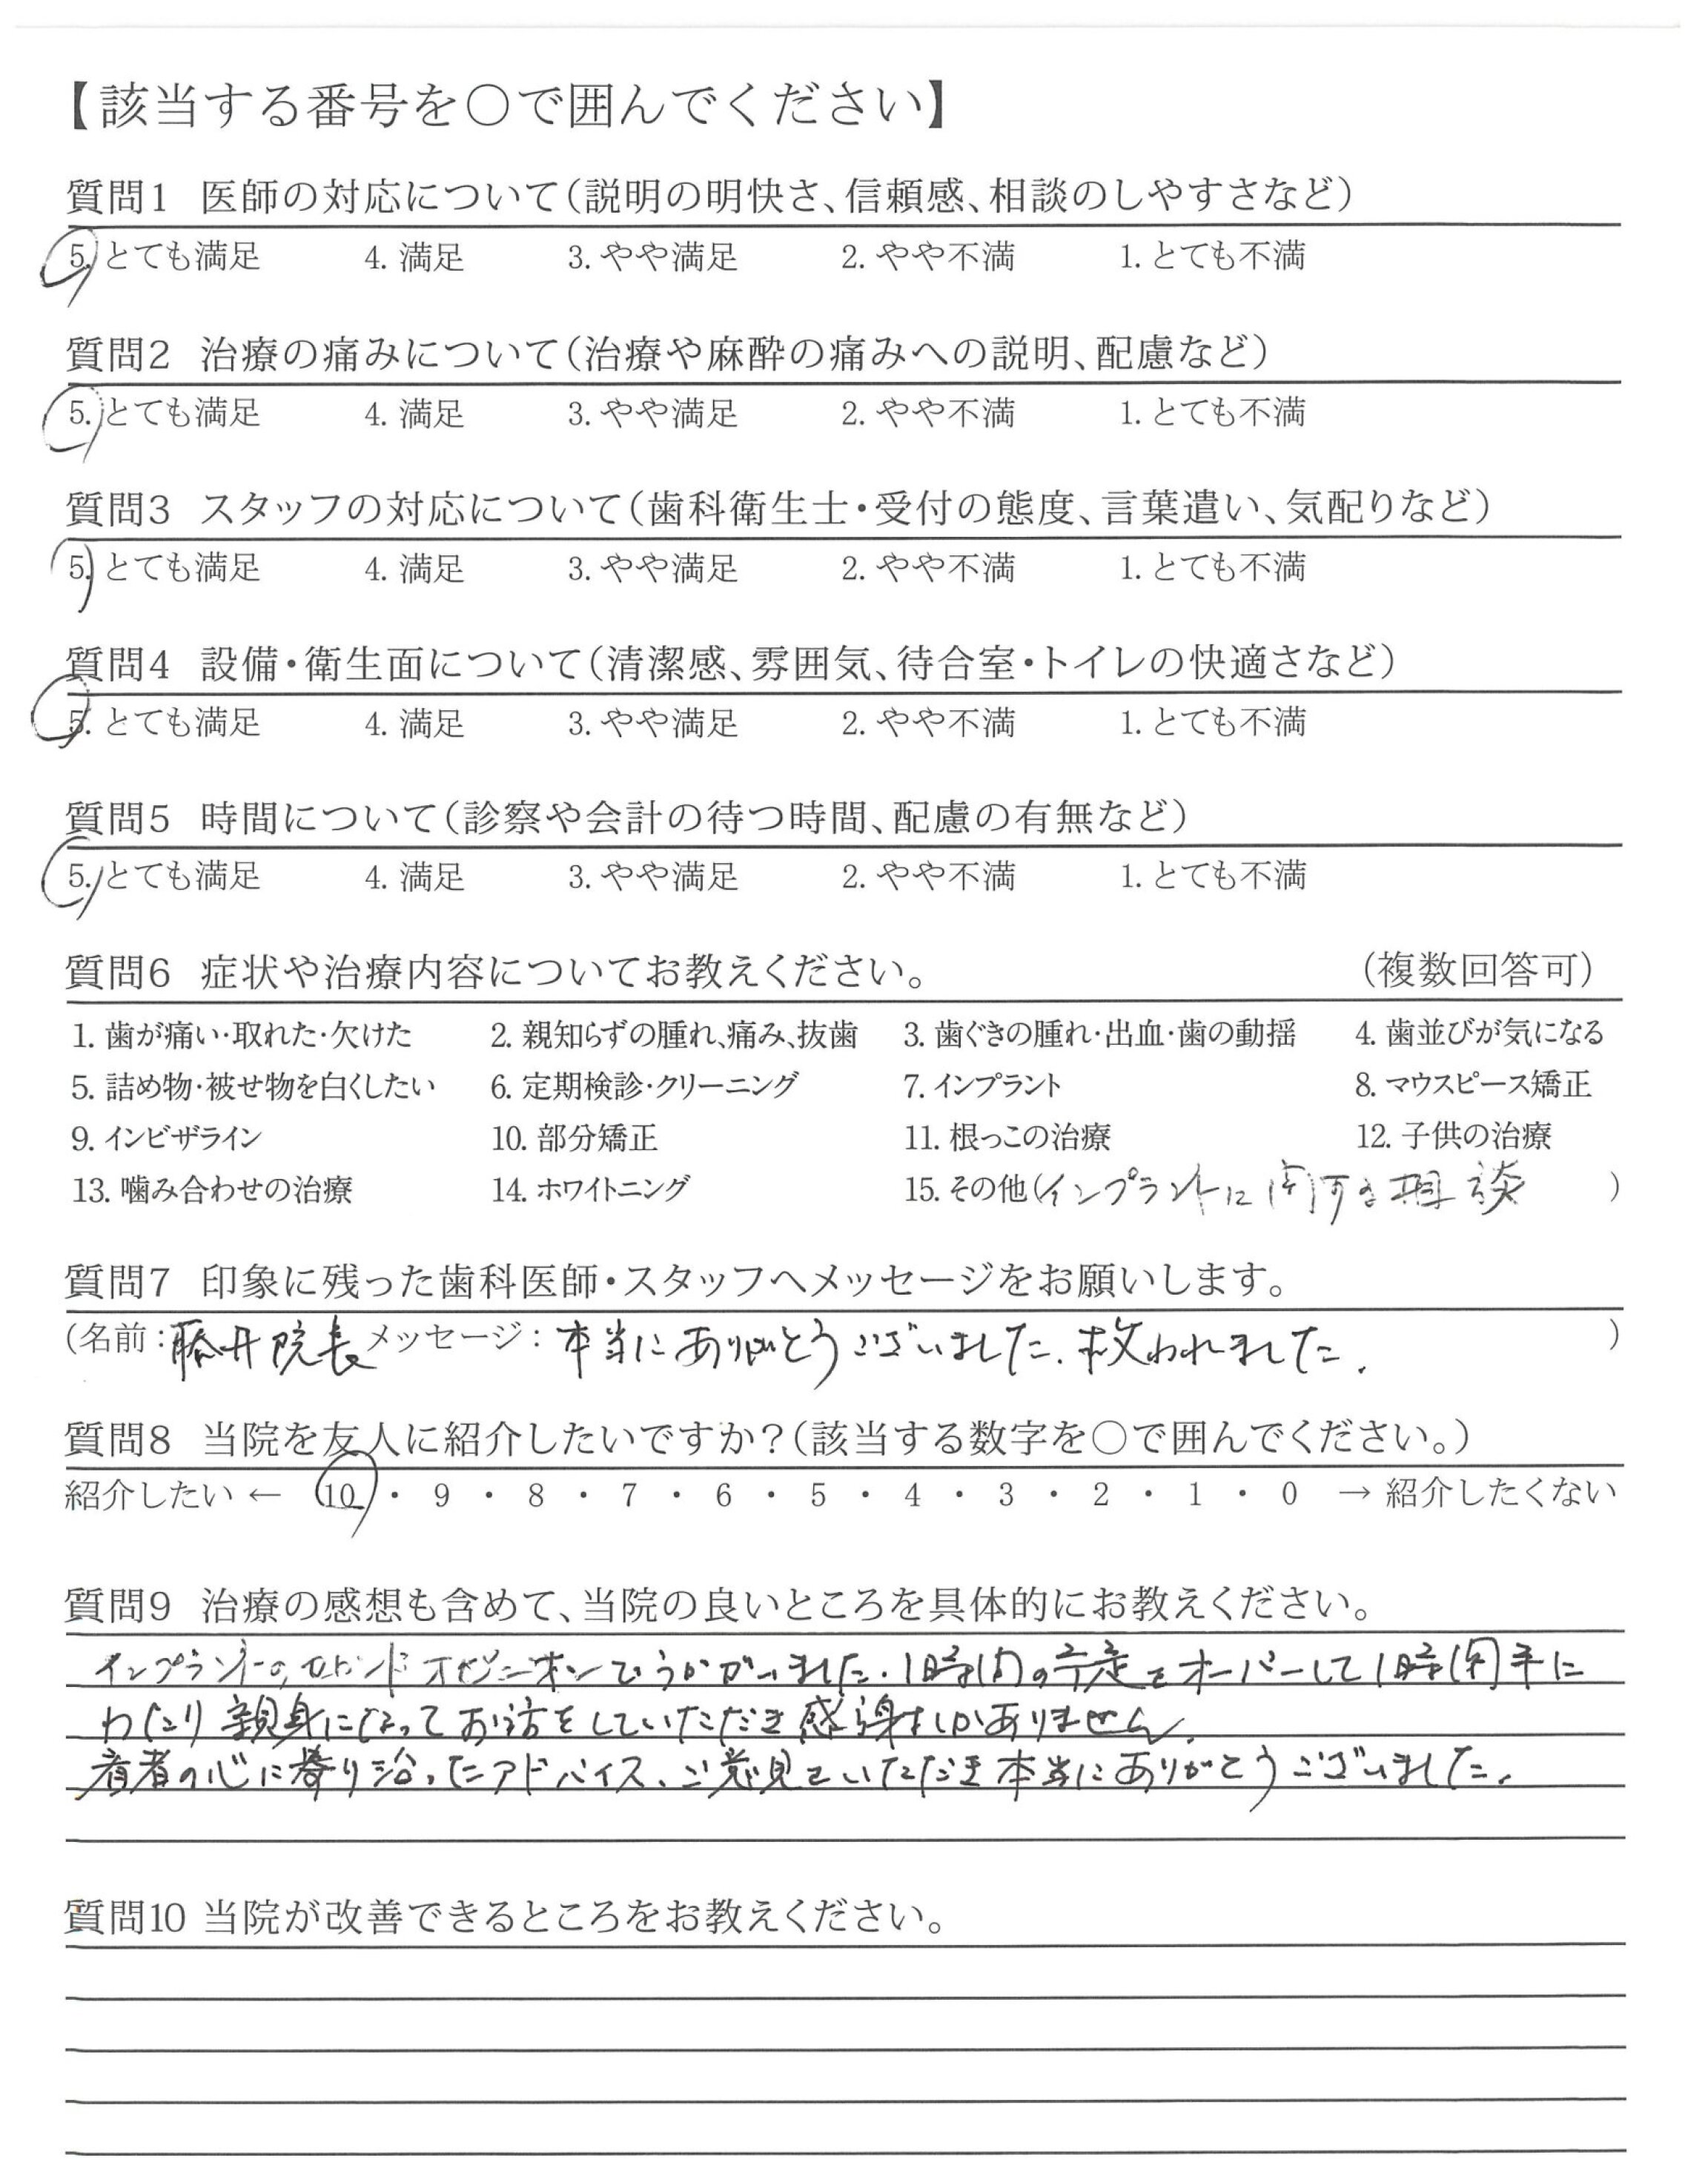 【該当する番号を○で囲んでください】
質問1 医師の対応について(説明の明快さ、信頼感、相談のしやすさなど)
5. とても満足 4. 満足 3. やや満足 2. やや不満 1. とても不満
質問2 治療の痛みについて(治療や麻酔の痛みへの説明、配慮など)
5. とても満足 4. 満足 3. やや満足 2. やや不満 1. とても不満
質問3 スタッフの対応について(歯科衛生士・受付の態度、言葉遣い、気配りなど)
5. とても満足 4. 満足 3. やや満足 2. やや不満 1. とても不満
質問4 設備・衛生面について(清潔感、雰囲気、待合室・トイレの快適さなど)
5. とても満足 4. 満足 3. やや満足 2. やや不満 1. とても不満
質問5 時間について(診察や会計の待つ時間、配慮の有無など)
5. とても満足 4. 満足 3. やや満足 2. やや不満 1. とても不満
質問6 症状や治療内容についてお教えください。 (複数回答可)
1. 歯が痛い・取れた・欠けた 2. 親知らずの腫れ、痛み、抜歯 3. 歯ぐきの腫れ・出血・歯の動揺 4. 歯並びが気になる
5. 詰め物・被せ物を白くしたい 6. 定期検診・クリーニング 7. インプラント 8. マウスピース矯正
9. インビザライン 10. 部分矯正 11. 根っこの治療 12. 子供の治療
13. 噛み合わせの治療 14. ホワイトニング 15. その他(インプラントに関する相談)
質問7 印象に残った歯科医師・スタッフへメッセージをお願いします。
(名前:藤井院長 メッセージ:本当にありがとうございました。救われました。)
質問8 当院を友人に紹介したいですか?(該当する数字を○で囲んでください。)
紹介したい ← 10 ・ 9 ・ 8 ・ 7 ・ 6 ・ 5 ・ 4 ・ 3 ・ 2 ・ 1 ・ 0 → 紹介したくない
質問9 治療の感想も含めて、当院の良いところを具体的にお教えください。
インプラントのセカンドオピニオンでうかがいました。1時間の予定をオーバーして1時間半に
わたり親身になってお話をしていただき感謝しかありません。
患者の心に寄り沿ったアドバイス、ご意見をいただき本当にありがとうございました。
質問10 当院が改善できるところをお教えください。